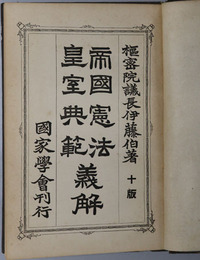 樞密院議長伊藤伯著
十版
帝國憲法
皇室典範
義解
國家學會刊行